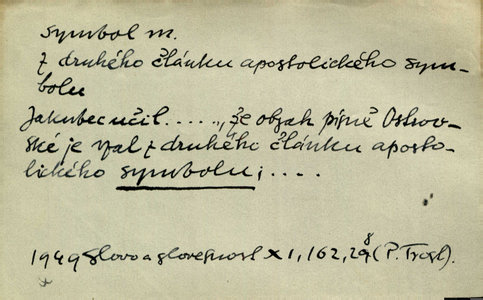 symbol m.
z druhého článku apostolického sym-
bolu
Jakubec učil....., že obsah písně Ostrov-
ské je vzat z druhého článku aposto-
lického symbolu;....
1949 Slovo a slovesnost X 1, 162, 298 (P. Trost).